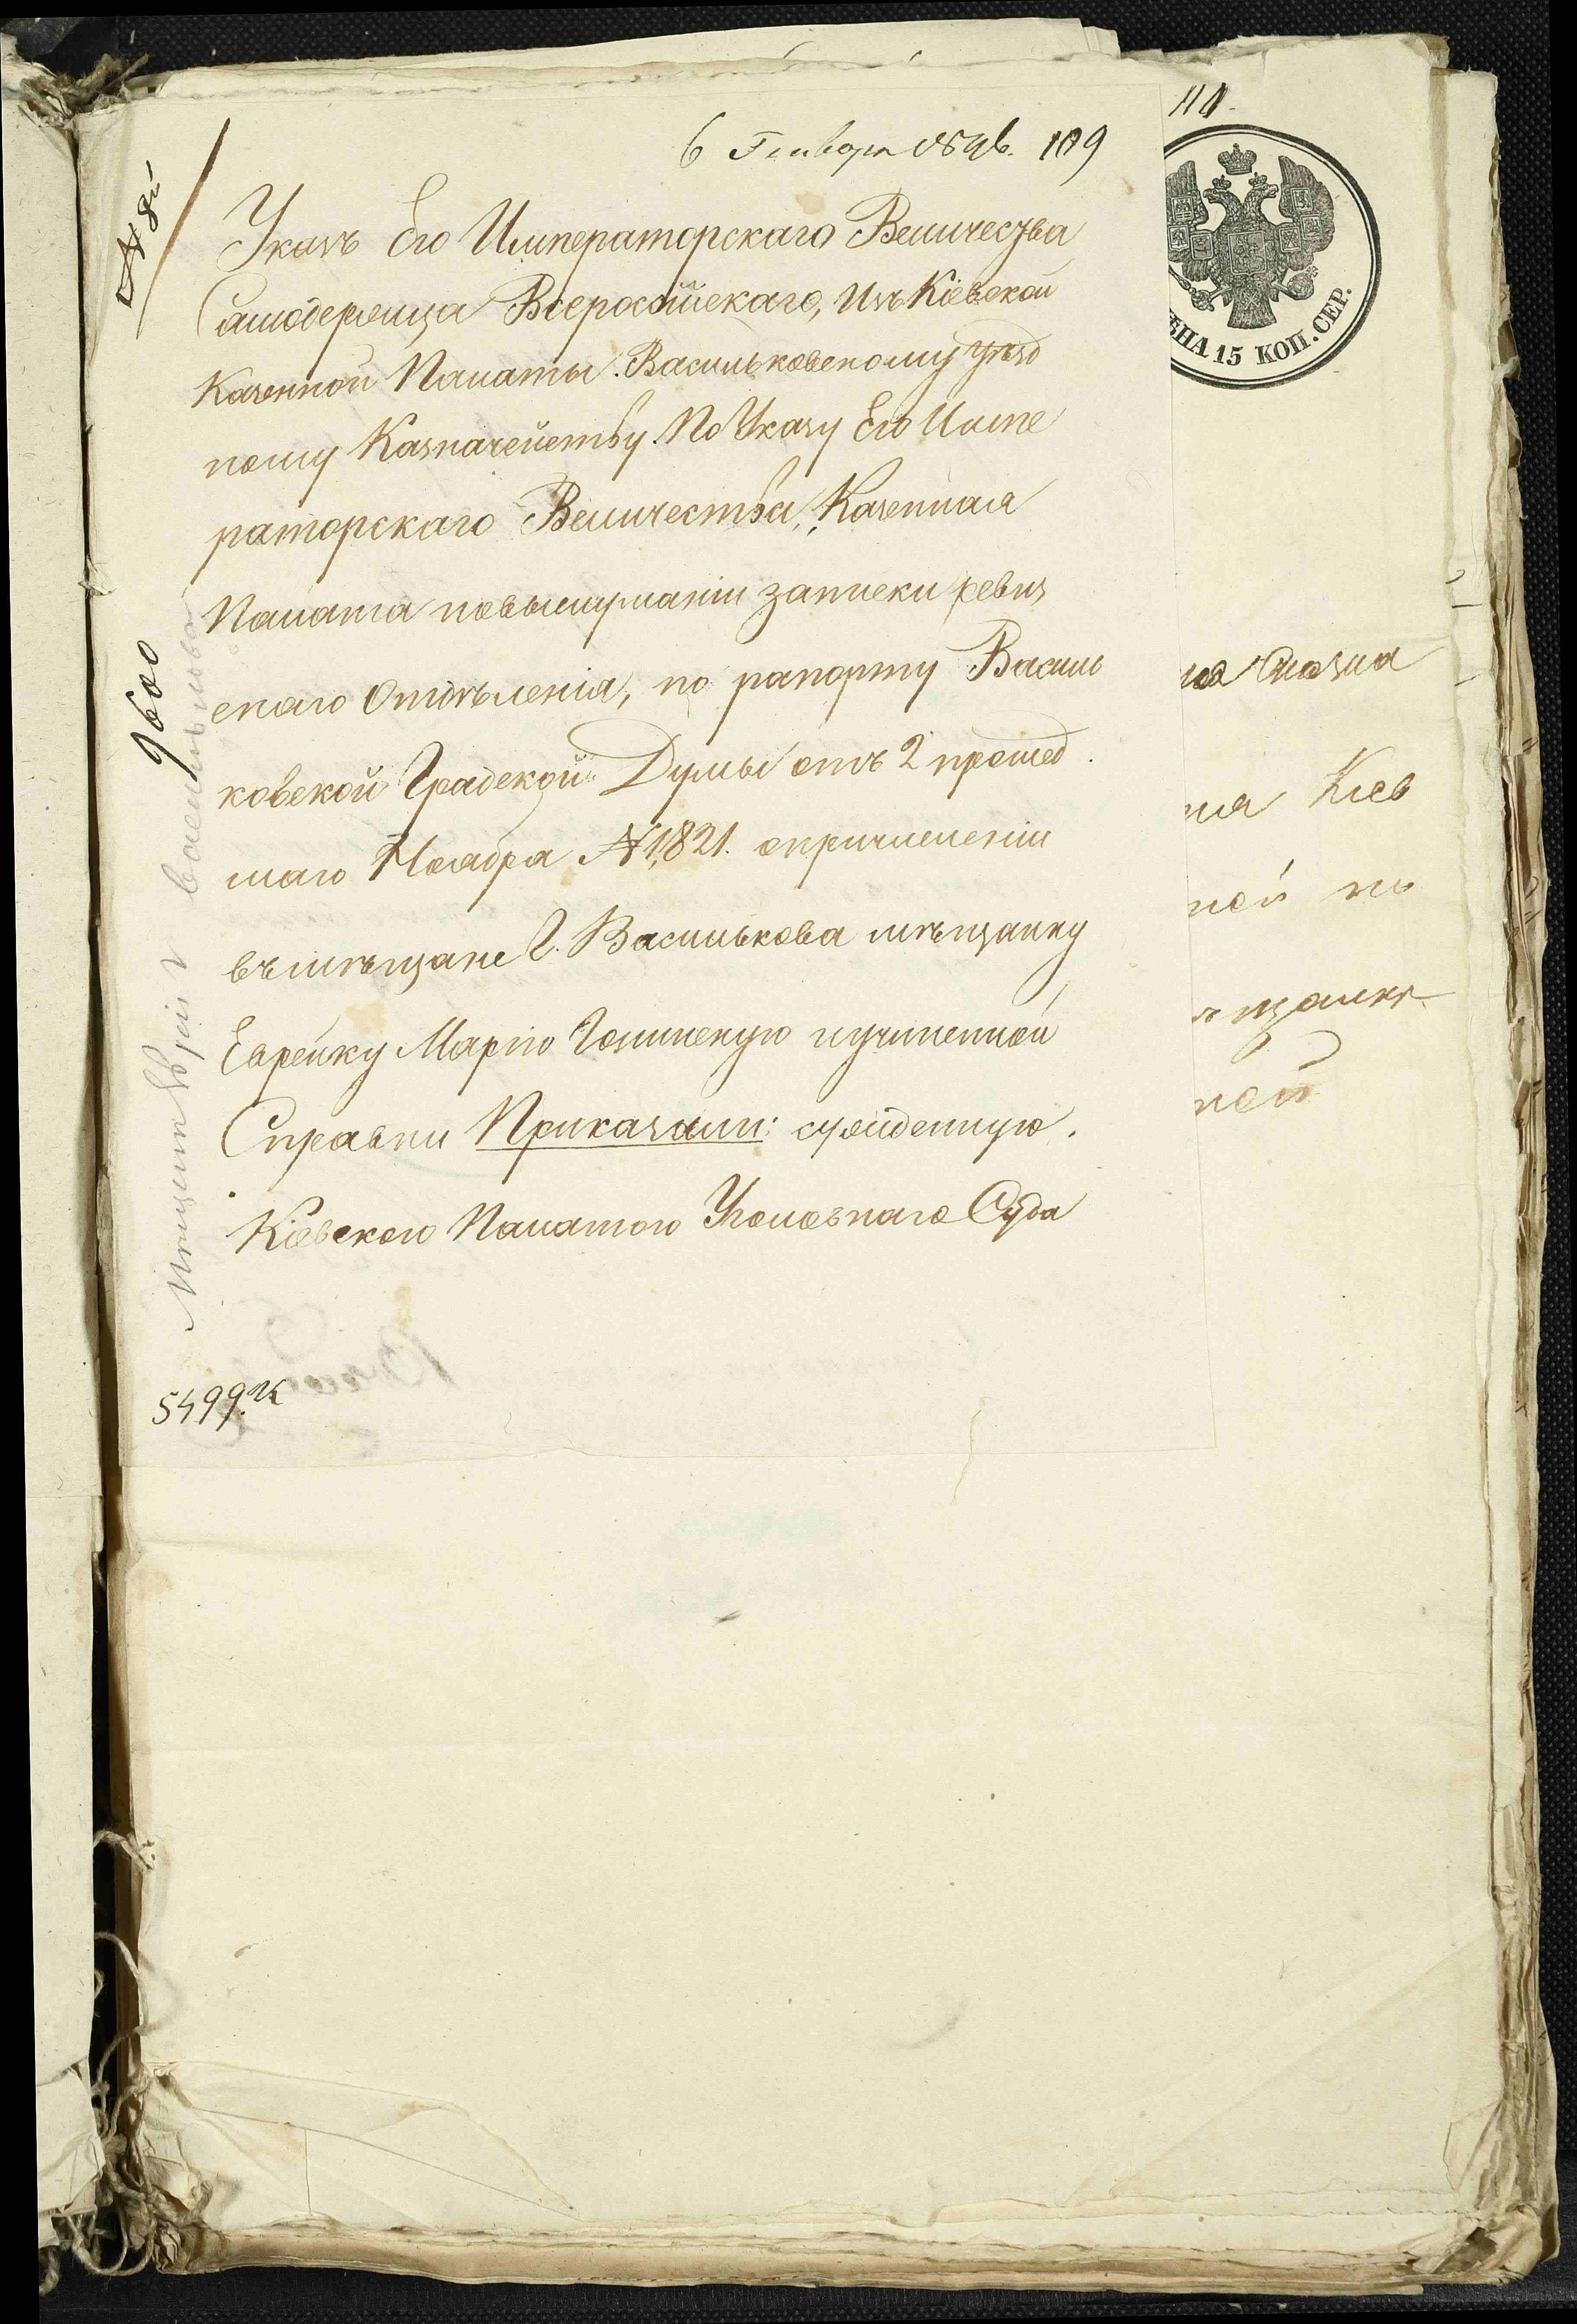 111.
6 Генваря 1846. 109
№ 8й
Указъ Его Императорскаго Величества
Самодержца Всероссійскаго, Изъ Кіевской
Казенной Палаты. Васильковскому Уѣзд
ному Казначейству. По Указу Его Импе
раторскаго Величества, Казенная
Палата повыслушаніи записки ревиз
скаго Отдѣленія, по рапорту Василь
ковской Градской Думы отъ 2 прошед
шаго Ноября № 1,821. опричисленіи
въ мѣщане Г. Василькова мѣщанку
Еврейку Марію иучиненной
Справки Приказали: сужденную
Кіевскою Палатою Уголовнаго Суда
9600
5499. К
ЦѢНА 15 КОП. СЕР.
ия Кіев
ной по
щанк
ной